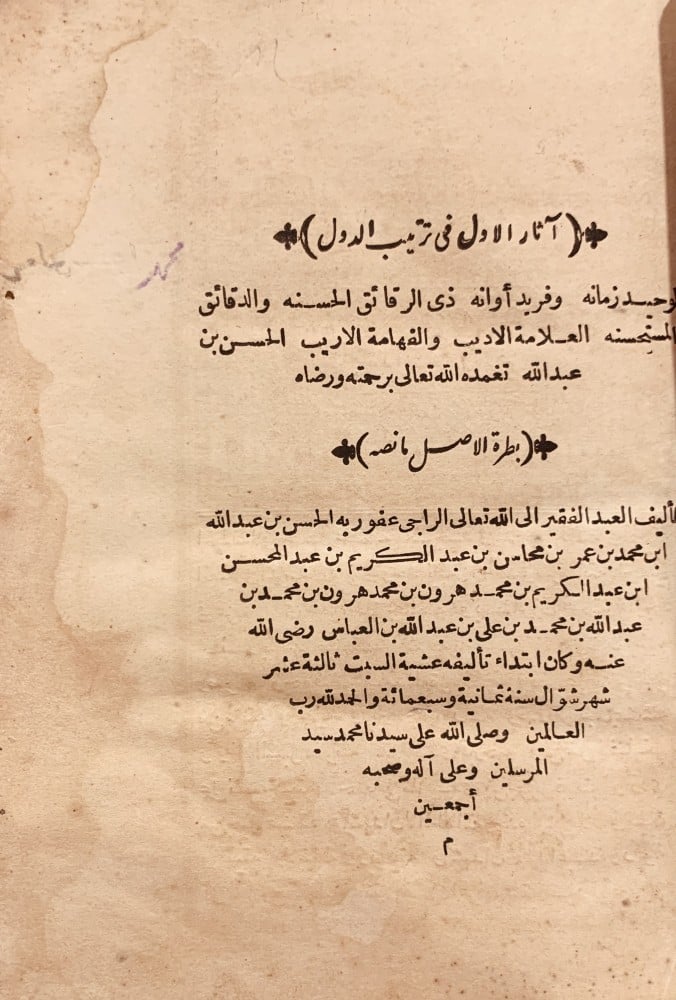 (آثار الاول فى ترتيب الدول)
لوحيد زمانه وفريد أوانه ذى الرقائق الحسنه والدقائق
المستحسنه العلامة الاديب والفهامة الاريب الحسن بن
عبد الله تغمده الله تعالى برحمته ورضاه
(بطرة الاصل مانصه)
تأليف العبد الفقير الى الله تعالى الراجى عفو ربه الحسن بن عبد الله
ابن محمد بن عمر بن محاسن بن عبد الكريم بن عبد المحسن
ابن عبد الكريم بن محمد هرون بن محمد هرون بن محمد بن
عبد الله بن محمد بن على بن عبد الله بن العباس رضى الله
عنه وكان ابتداء تأليفه عشية السبت ثالثة عشر
شهر شوّال سنة ثمانية وسبعمائة والحمد لله رب
العالمين وصلى الله على سيدنا محمد سيد
المرسلين وعلى آله وصحبه
أجمعين
م
محمد